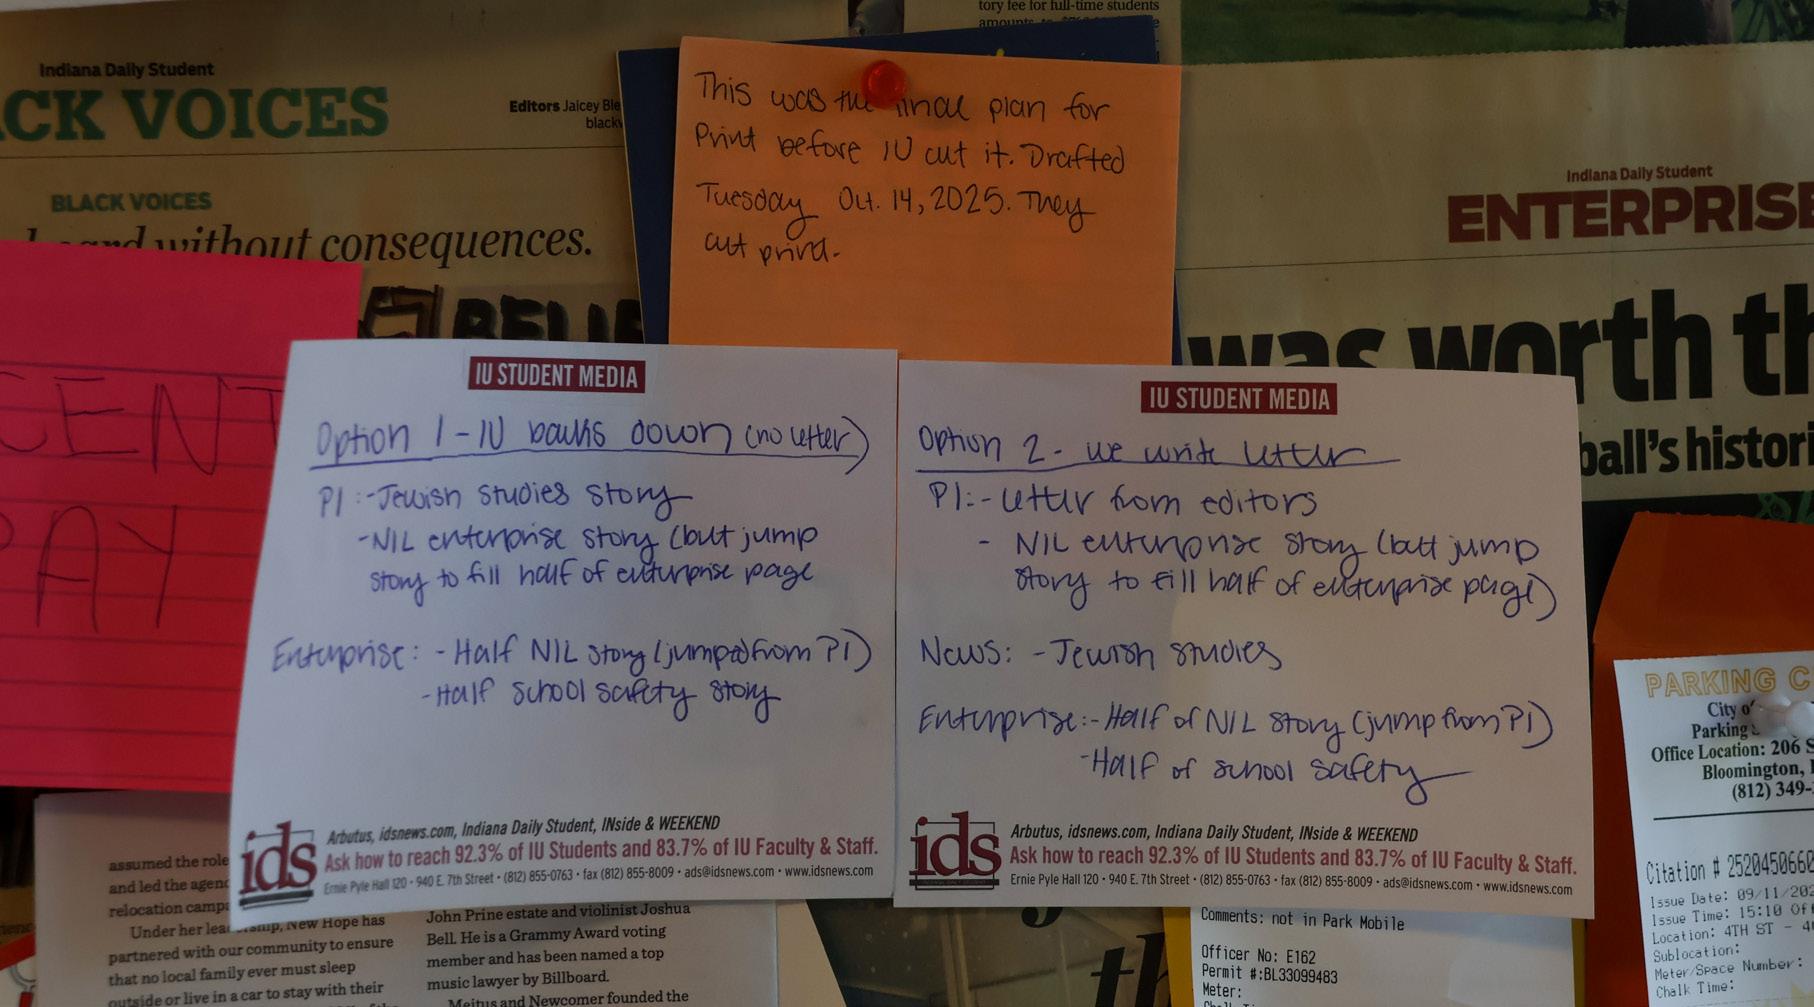 tory fee for full-time students
Indiana Daily Student
CK VOICES
Editors Jaicey Ble
black
BLACK VOICES
heard without consequences.
This was the final plan for
Print before IU cut it. Drafted
Tuesday Oct. 14, 2025. They
cut print.
Indiana Daily Student
ENTERPRIS
was worth th
ball's histori
BELIE
CENT
PAY
IU STUDENT MEDIA
Option 1 - IU backs down (no letter)
P1: - Jewish studies story
- NIL enterprise story (but jump
story to fill half of enterprise page
Enterprise: - Half NIL story (jumped from P1)
- Half school safety story
ids
Arbutus, idsnews.com, Indiana Daily Student, INside & WEEKEND
Ask how to reach 92.3% of IU Students and 83.7% of IU Faculty & Staff.
Ernie Pyle Hall 120 • 940 E. 7th Street • (812) 855-0763 • fax (812) 855-8009 • ads@idsnews.com • www.idsnews.com
IU STUDENT MEDIA
Option 2 - we write letter
P1: - letter from editors
- NIL enterprise story (but jump
story to fill half of enterprise page)
News: - Jewish studies
Enterprise: - Half of NIL story (jump from P1)
- Half of school safety
ids
Arbutus, idsnews.com, Indiana Daily Student, INside & WEEKEND
Ask how to reach 92.3% of IU Students and 83.7% of IU Faculty & Staff.
Ernie Pyle Hall 120 • 940 E. 7th Street • (812) 855-0763 • fax (812) 855-8009 • ads@idsnews.com • www.idsnews.com
PARKING C
City o
Parking
Office Location: 206 S
Bloomington, I
(812) 349-
Citation # 2520450660
Issue Date: 09/11/202
Issue Time: 15:10 Off
Location: 4TH ST - 4
Sublocation:
Meter/Space Number:
Chalk Time:
assumed the role
and led the agen
relocation camp
Under her leadership, New Hope has
partnered with our community to ensure
that no local family ever must sleep
outside or live in a car to stay with their
John Prine estate and violinist Joshua
Bell. He is a Grammy Award voting
member and has been named a top
music lawyer by Billboard.
Meitus and Newcomer founded the
th
Comments: not in Park Mobile
Officer No: E162
Permit #:BL33099483
Meter: